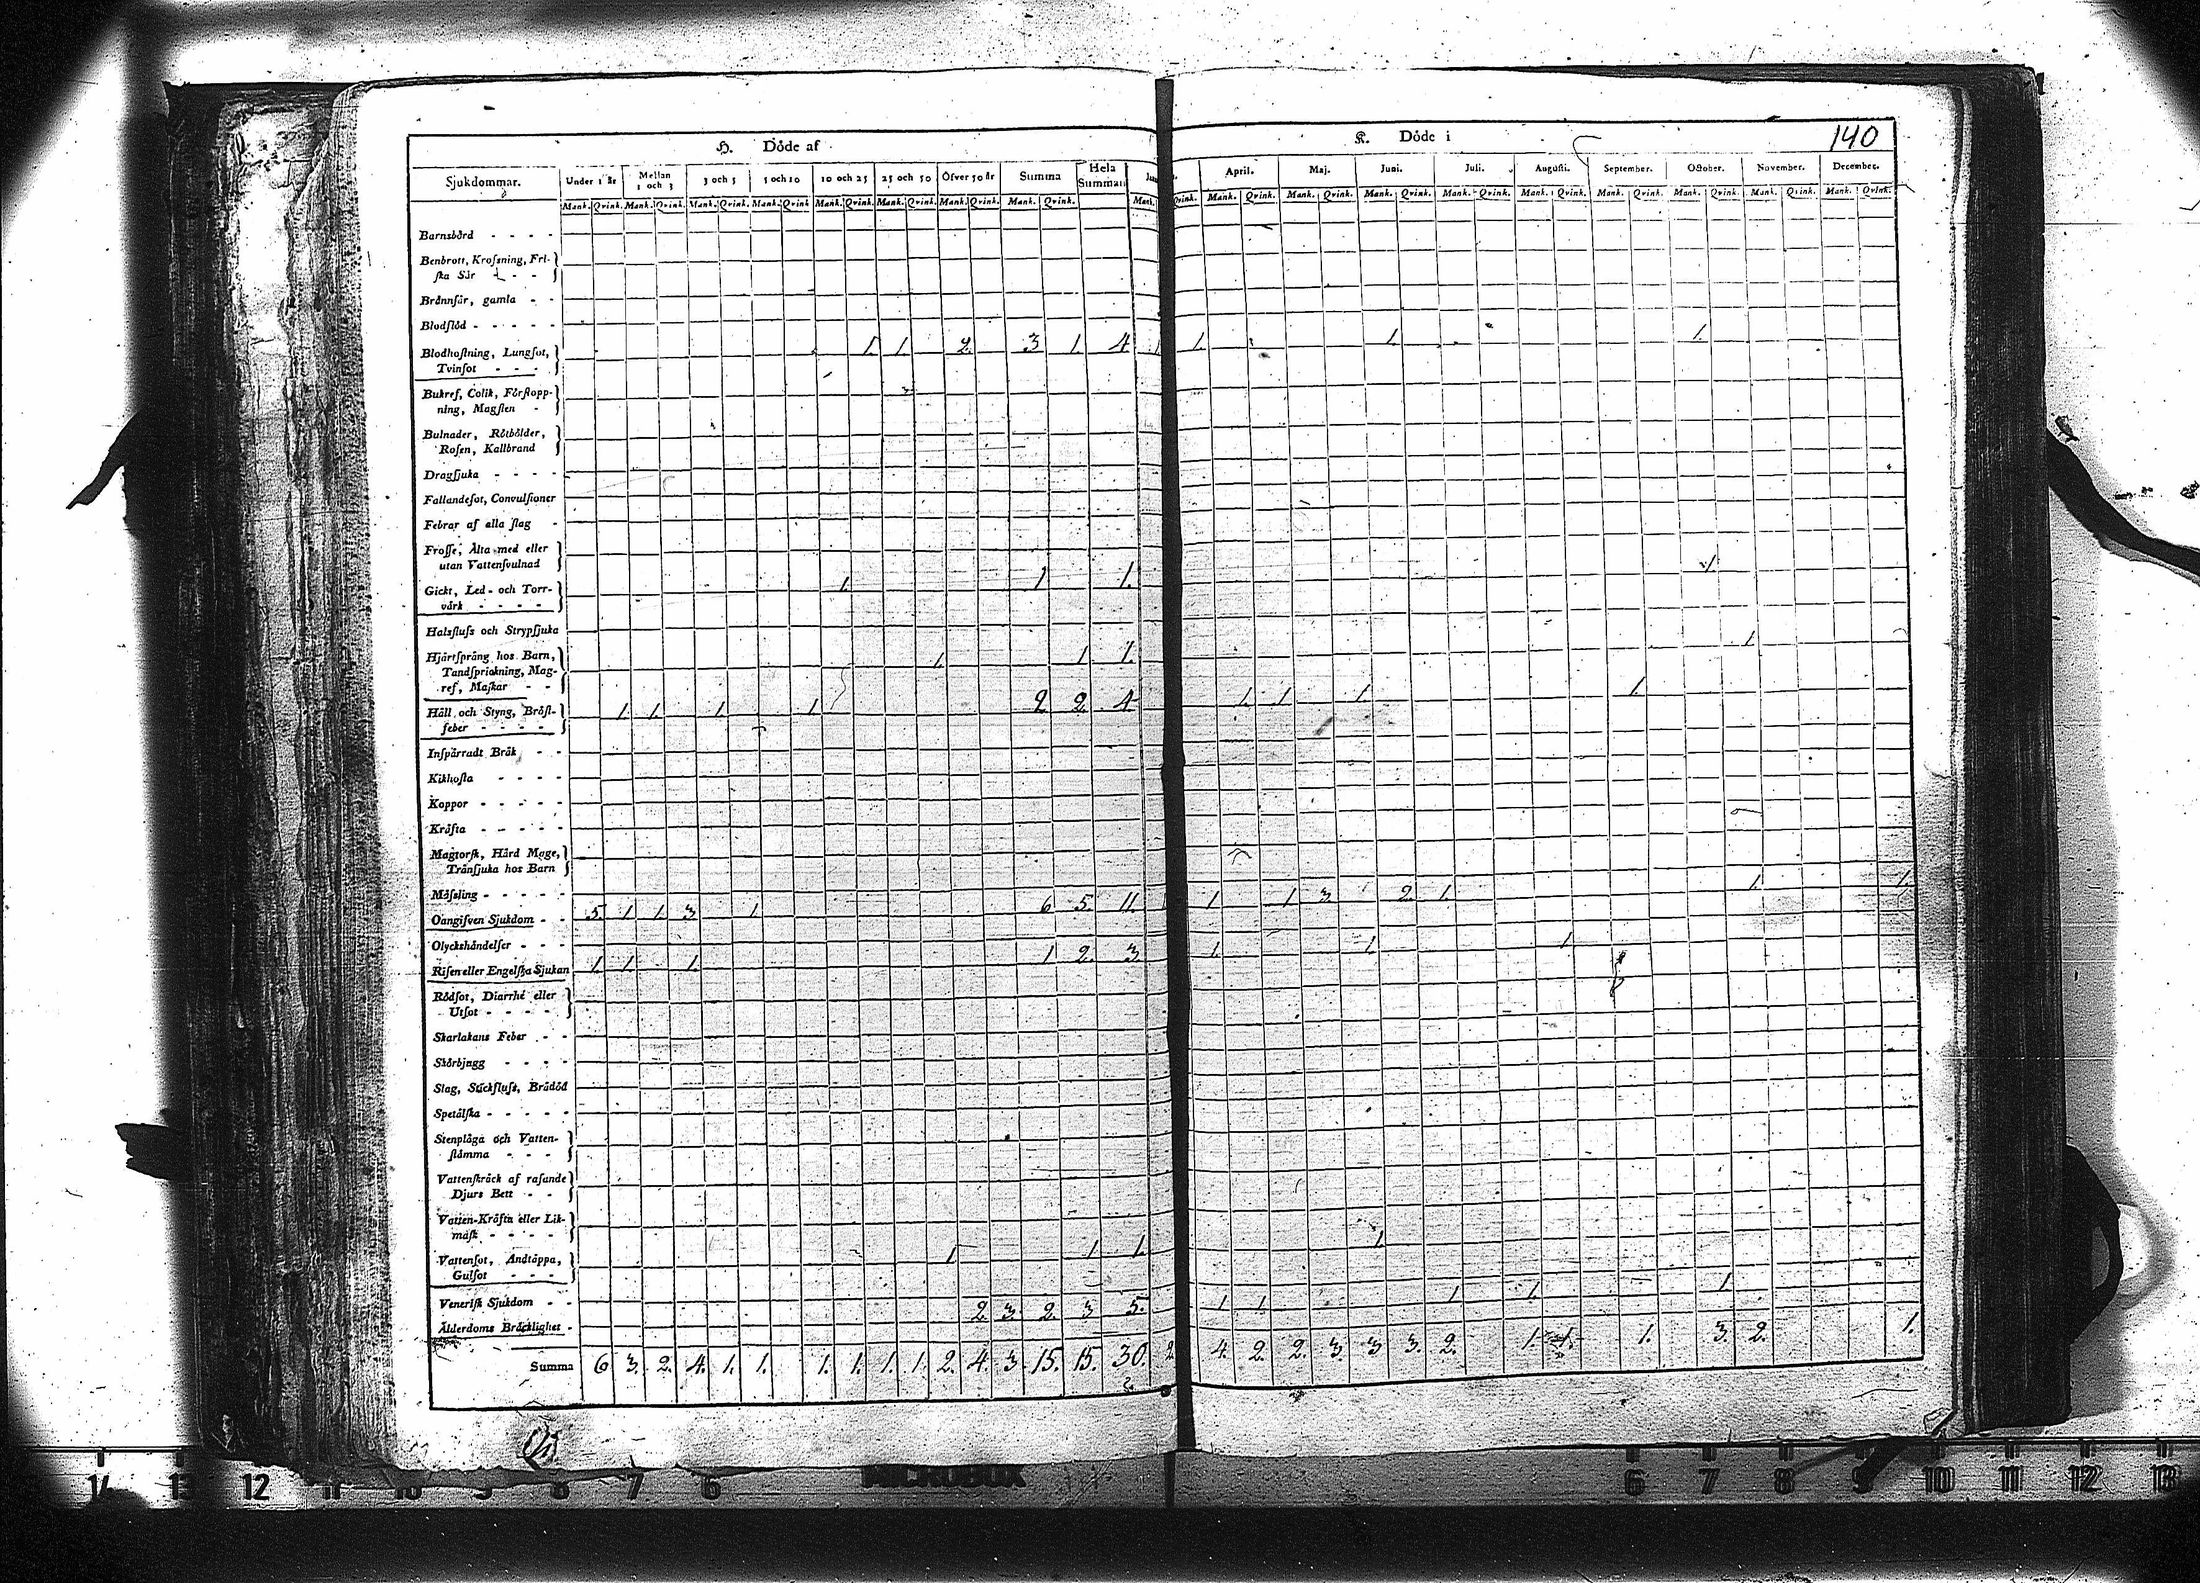 H. Döde af
K. Döde i
140
Sjukdommar.
Under 1 år
Mellan 1 och 3
3 och 5
5 och 10
10 och 25
25 och 50
Öfver 50 år
Summa
Hela Summan
April.
Maj.
Juni.
Juli.
Augusti.
September.
October.
November.
December.
Mank. Qvink. Mank. Qvink. Mank. Qvink. Mank. Qvink. Mank. Qvink. Mank. Qvink. Mank. Qvink. Mank. Qvink. Mank. Qvink. Mank. Qvink. Mank. Qvink. Mank. Qvink. Mank. Qvink. Mank. Qvink. Mank. Qvink. Mank. Qvink. Mank. Qvink. Mank. Qvink.
Barnsbörd - - - -
Benbrott, Krossning, Fri-
ska Sår - - -
Brännsår, gamla - -
Blodflöd - - - - -
Blodhostning, Lungsot,
Tvinsot - - -
1. 1. 2. 3 1. 4 1. 1. 1.
Bukref, Colik, Förstopp-
ning, Magsten -
Bulnader, Rötbölder,
Rosen, Kallbrand
Dragsjuka - - - -
Fallandesot, Convulsioner
Febrar af alla slag -
Frosse, Älta med eller
utan Vattensvulnad
Gickt, Led- och Torr-
värk - - - -
1. 1 1. 1.
Halsfluss och Strypsjuka
Hjärtsprång hos Barn,
Tandsprickning, Mag-
ref, Maskar - -
1. 1 1. 1.
Håll och Styng, Bröst-
feber - - - -
1. 1. 1. 1. 2 2. 4 1. 1. 1. 1.
Inspärradt Bråk - -
Kikhosta - - - -
Koppor - - - - -
Kräfta - - - - -
Magtorsk, Hård Mage,
Trånsjuka hos Barn
Mässling - - - - -
Oangifven Sjukdom - -
5. 1. 1. 3. 1. 6 5. 11. 1. 1. 3. 2. 1. 1. 1.
Olyckshändelser - - -
Risen eller Engelska Sjukan
1. 1. 1. 1 2. 3. 1. 1. 1.
Rödsot, Diarrhé eller
Utsot - - - -
Skarlakans Feber - -
Skörbjugg - - - -
Slag, Stickfluss, Brådöd
Spetälska - - - - -
Stenplåga och Vatten-
stämma - - -
Vattenskräck af rasande
Djurs Bett - -
Vatten-Kräfta eller Lik-
mask - - - - -
Vattensot, Andtäppa,
Gulsot - - -
1. 1 1. 1.
Venerisk Sjukdom - -
Ålderdoms Bräcklighet -
2. 3. 2. 3 5. 1. 1. 1. 1. 1.
Summa 6 3. 2. 4. 1. 1. 1. 1. 1. 1. 2. 4. 3. 15. 15. 30. 2. 4. 2. 2. 3. 3 3. 2. 1. 1. 3. 2. 1.
14 13 12 11 10 9 8 7 6
MICROBOX
6 7 8 9 10 11 12 13